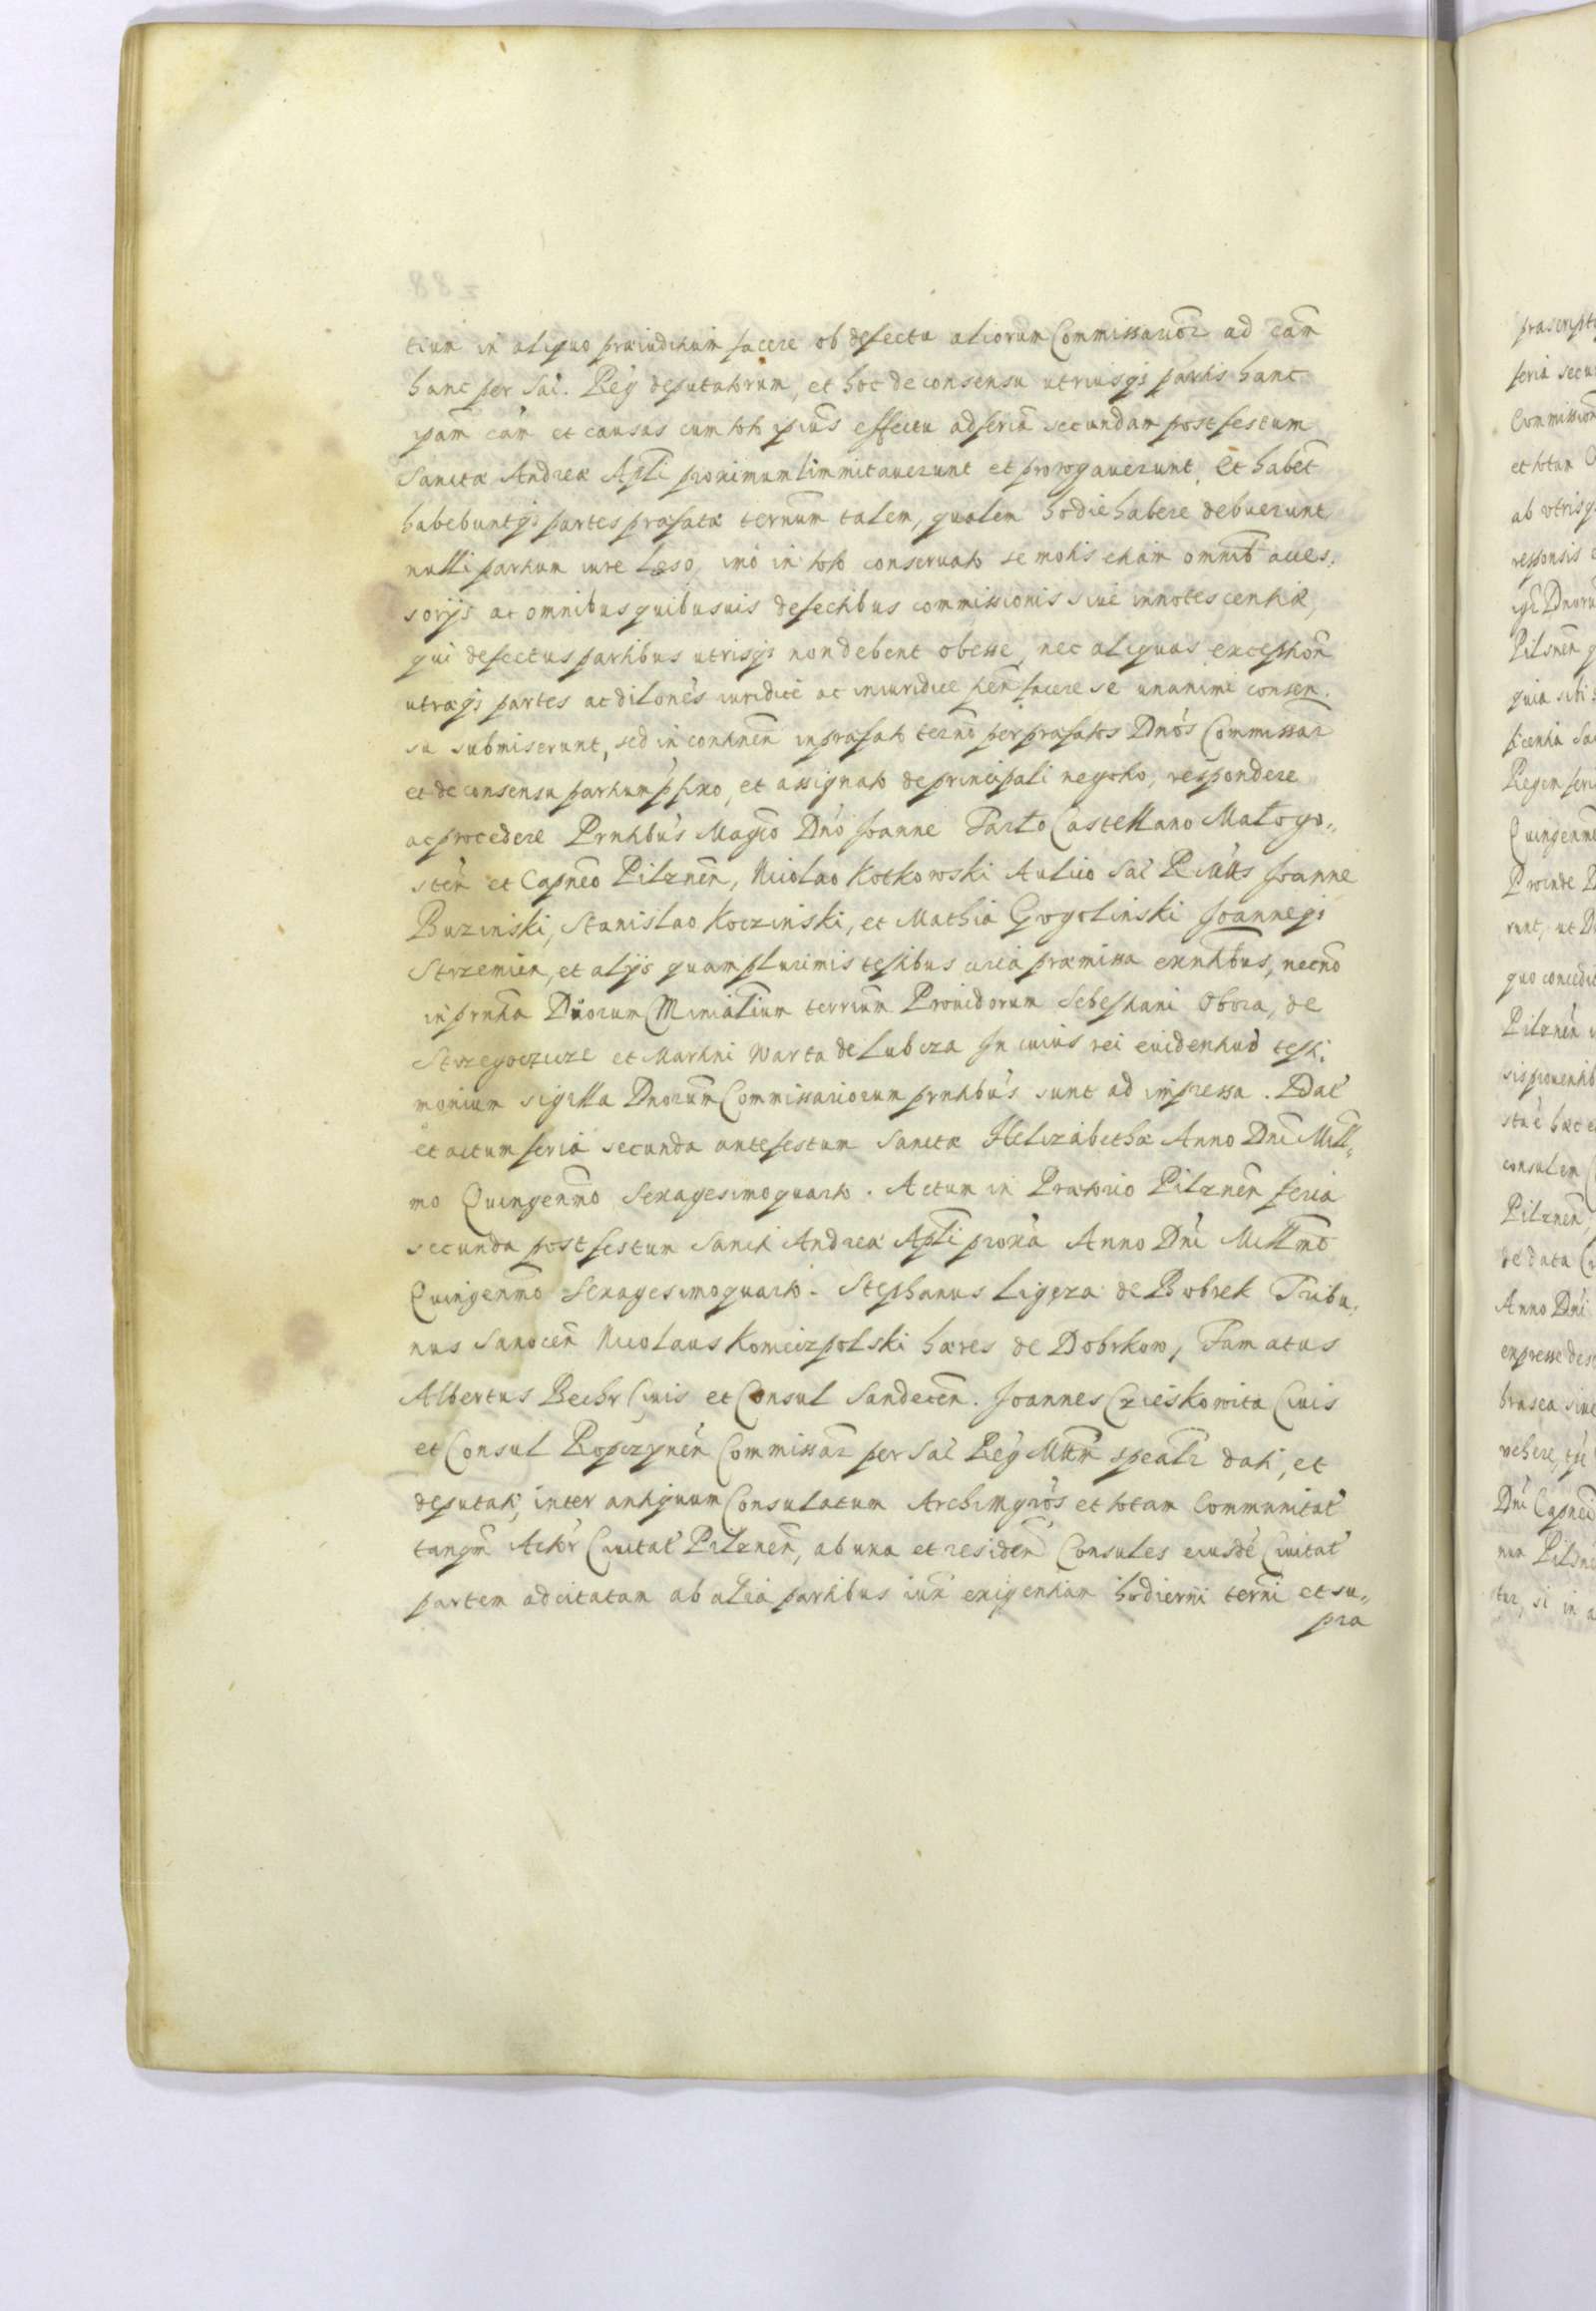 tium in aliquo præiudicium facere ob defectu aliorum Commissarior ad cam
hanc per Sac. Reg deputatorum, et hoc de consensu utriusqȝ partis hanc
ipam cam et causas cum toto ipius effectu ad feria secundam post festum
Sanctæ Andreæ Apli proximum limmitaverunt et prorogaverunt, et habent
habebuntqȝ partes præfatæ ternum talem, qualem hodie habere debuerunt
nulli partium iure læso, imò in toto conservato se motis etiam omnib acces,
sorijs ac omnibus quibusuis defectibus commissionis siue innotescentiæ,
qui defectus partibus utrisqȝ non debent obesse, nec aliquas exception
utræqȝ partes ac dilones iuridice ac iniuridice facere se unanimi consen,
su submiserunt, sed in continen in præfato termo per præfatos Dnos Commissar
et de consensu partium pfixo, et assignato de principali negotio, respondere
ac procedere Prntibus Magco Dno Joanne Tarlo Castellano Małogo,,
sten et Capneo Pilznen, Nicolao Kotkowski Aulico Sac Joanne
Buzinski, Stanislao Koczinski, et Mathia Gogolinski Joanneqȝ
Strzemien, et alijs quam plurimis testibus circa præmissa exntibus, necno
in prntia Duorum Minialium terrium Providorum Sebestiani Obora, de
Strzegoczice et Martini Warta de Lubcza In cuius rei evidentius testi,
monium sigilla Dnorum Commissariorum prntibus sunt ad impressa. Dat
et actum feria secunda ante festum Sanctæ Helizabethæ Anno Dni Mill,,
mo Quingenmo Sexagesimoquarto. Actum in Prætorio Pilznen feria
secunda post festum Sancti Andreæ Apli proxa Anno Dni Millmo
Quingenmo Sexagesimoquarto. Stephanus Ligęza de Bobrek Tribu,
nus Sanocen Nicolaus Koniecizpolski hæres de Dobrkow, Famatus
Albertus Bechr Civis et Consul Sandecen. Joannes Czieskowita Civis
et Consul Ropczynen Commissar per Sac Reg Mttm spealr dati, et
deputati, inter antiquum Consulatum Archimgros et totam Communitat
tanqm Actor Civitat Pilznen, ab una et residen Consules eiusde Civitat
partem ad citatam ab alia partibus iur exigentiam hodierni terni et su,,
pra